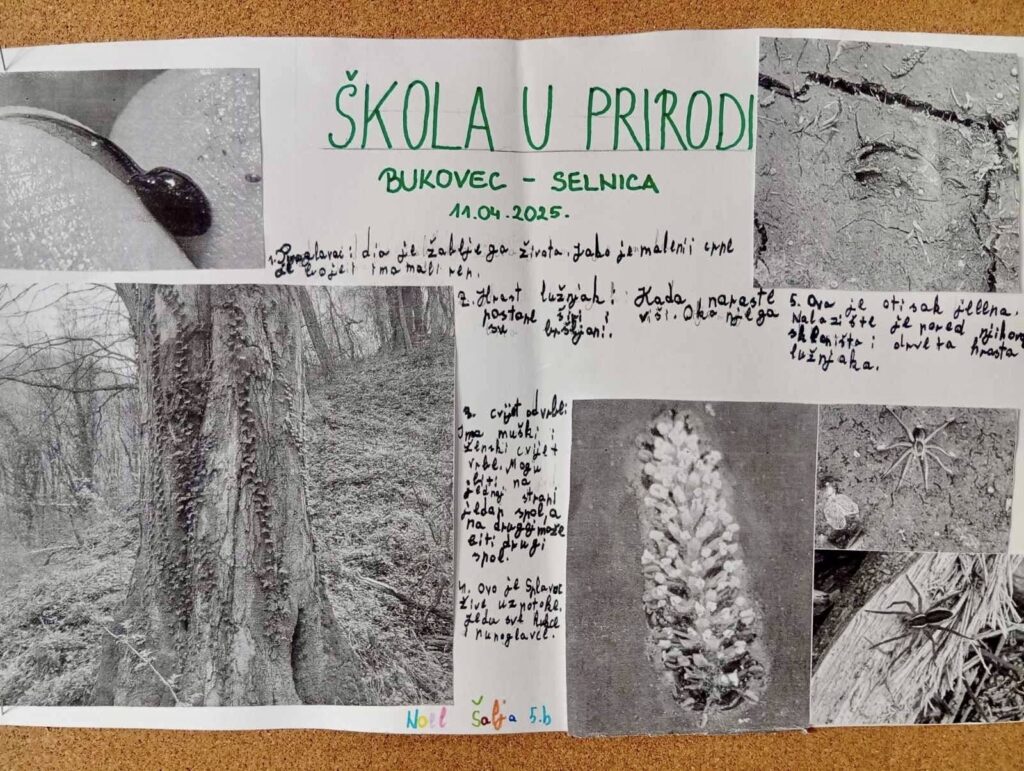 ŠKOLA U PRIRODI
BUKOVEC - SELNICA
11.04.2025.
1. Punoglavac: dio je žabljega života. Jako je maleni i crne
je boje i ima mali rep.
2. Hrast lužnjak: Kada naraste
postane širi i viši. Oko njega
su bršljani.
3. cvijet od vrbe:
Ima muški i
ženski cvijet
vrbe. Mogu
biti na
jednoj strani
jedan spol, a
na drugoj može
biti drugi
spol.
4. Ovo je Splavar
žive uz potoke,
jedu sve kukce
i punoglavce.
5. Ovo je otisak jelena.
Nalazište je pored njihovog
skloništa i drveta hrasta
lužnjaka.
Noel Šalja 5.b